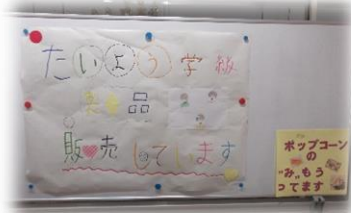 たいよう学級
品
販売しています
ポップコーン
の
"み„もう
ってます